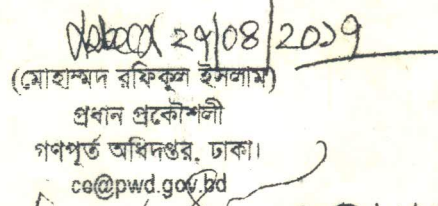 29/08/2019
(মোহাম্মদ রফিকুল ইসলাম)
প্রধান প্রকৌশলী
গণপূর্ত অধিদপ্তর, ঢাকা।
ce@pwd.gov.bd